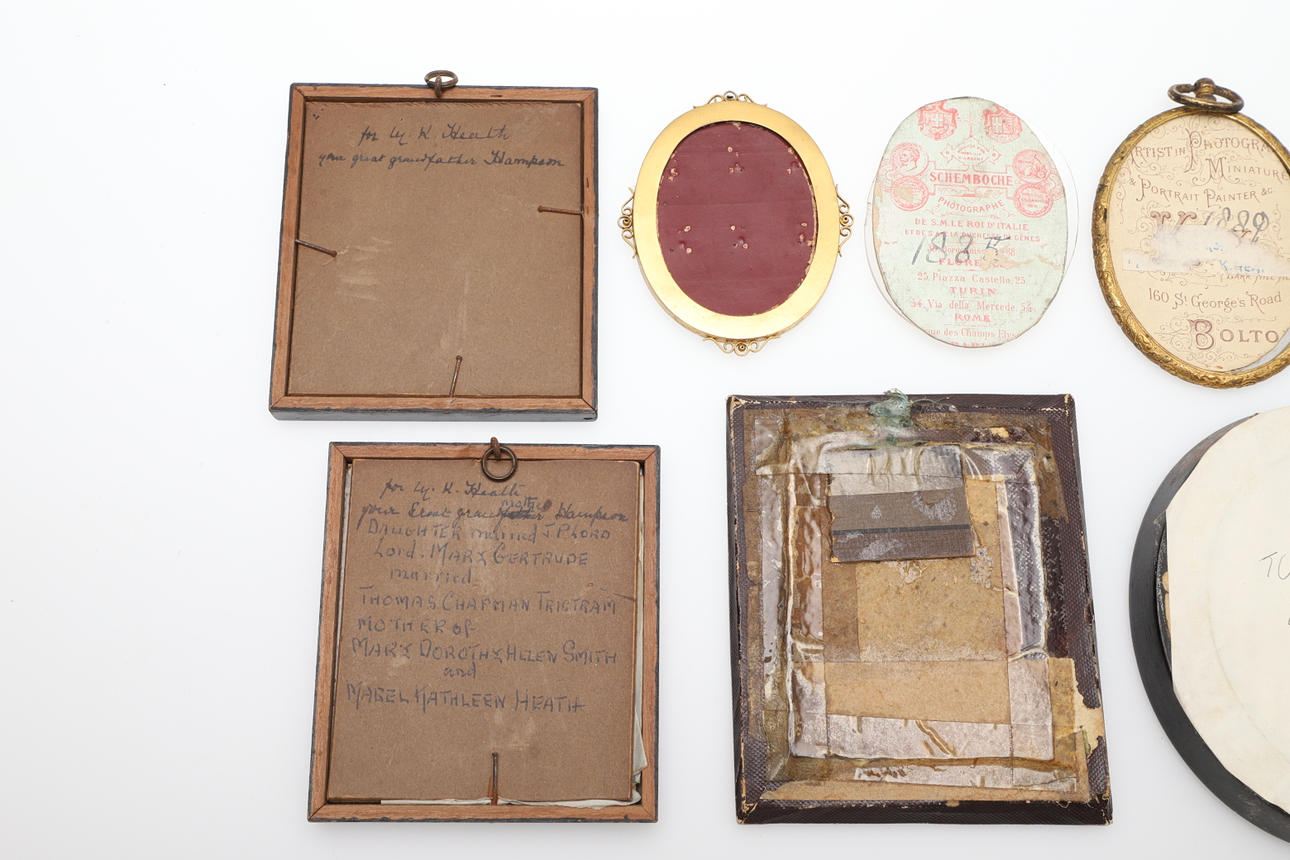 for M. K. Heath
your great grandfather Hampson
for M. K. Heath
your Great grandmother Hampson
DAUGHTER married J.P. LORD
Lord. MARY GERTRUDE
married
THOMAS CHAPMAN TRISTRAM
MOTHER OF
MARY DOROTHY HELEN SMITH
and
MABEL KATHLEEN HEATH
SCHEMBOCHE
PHOTOGRAPHE
DE S.M. LE ROI D'ITALIE
ET DE S.A. LA DUCHESSE DE GÊNES
1885
25, Piazza Castello, 25
TURIN
54, Via della Mercede, 54
ROME
que des Champs Elys
ARTIST IN PHOTOGRA
MINIATURE
& PORTRAIT PAINTER &c.
1889
160 St George's Road
BOLTO
TU